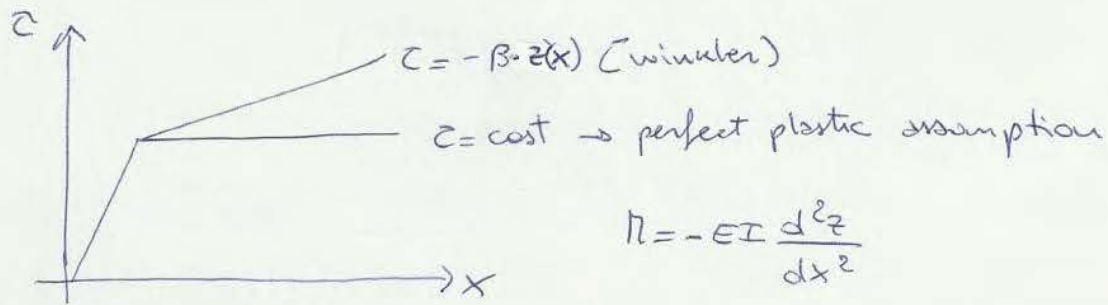 τ
τ = - β · z(x) (winkler)
τ = cost → perfect plastic assumption
M = - EI d²z / dx²
x